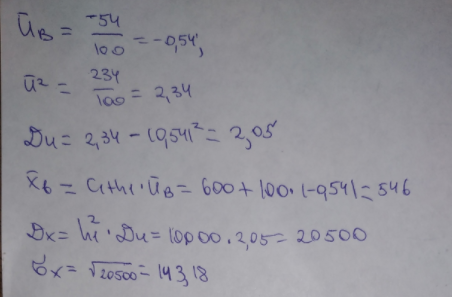 ū_B = -54/100 = -0,54,
ū² = 234/100 = 2,34
Du = 2,34 - (0,54)² = 2,05
x̄_B = C+h·ū_B = 600+100·(-0,54) = 546
Dx = h²·Du = 10000·2,05 = 20500
σx = √20500 = 143,18